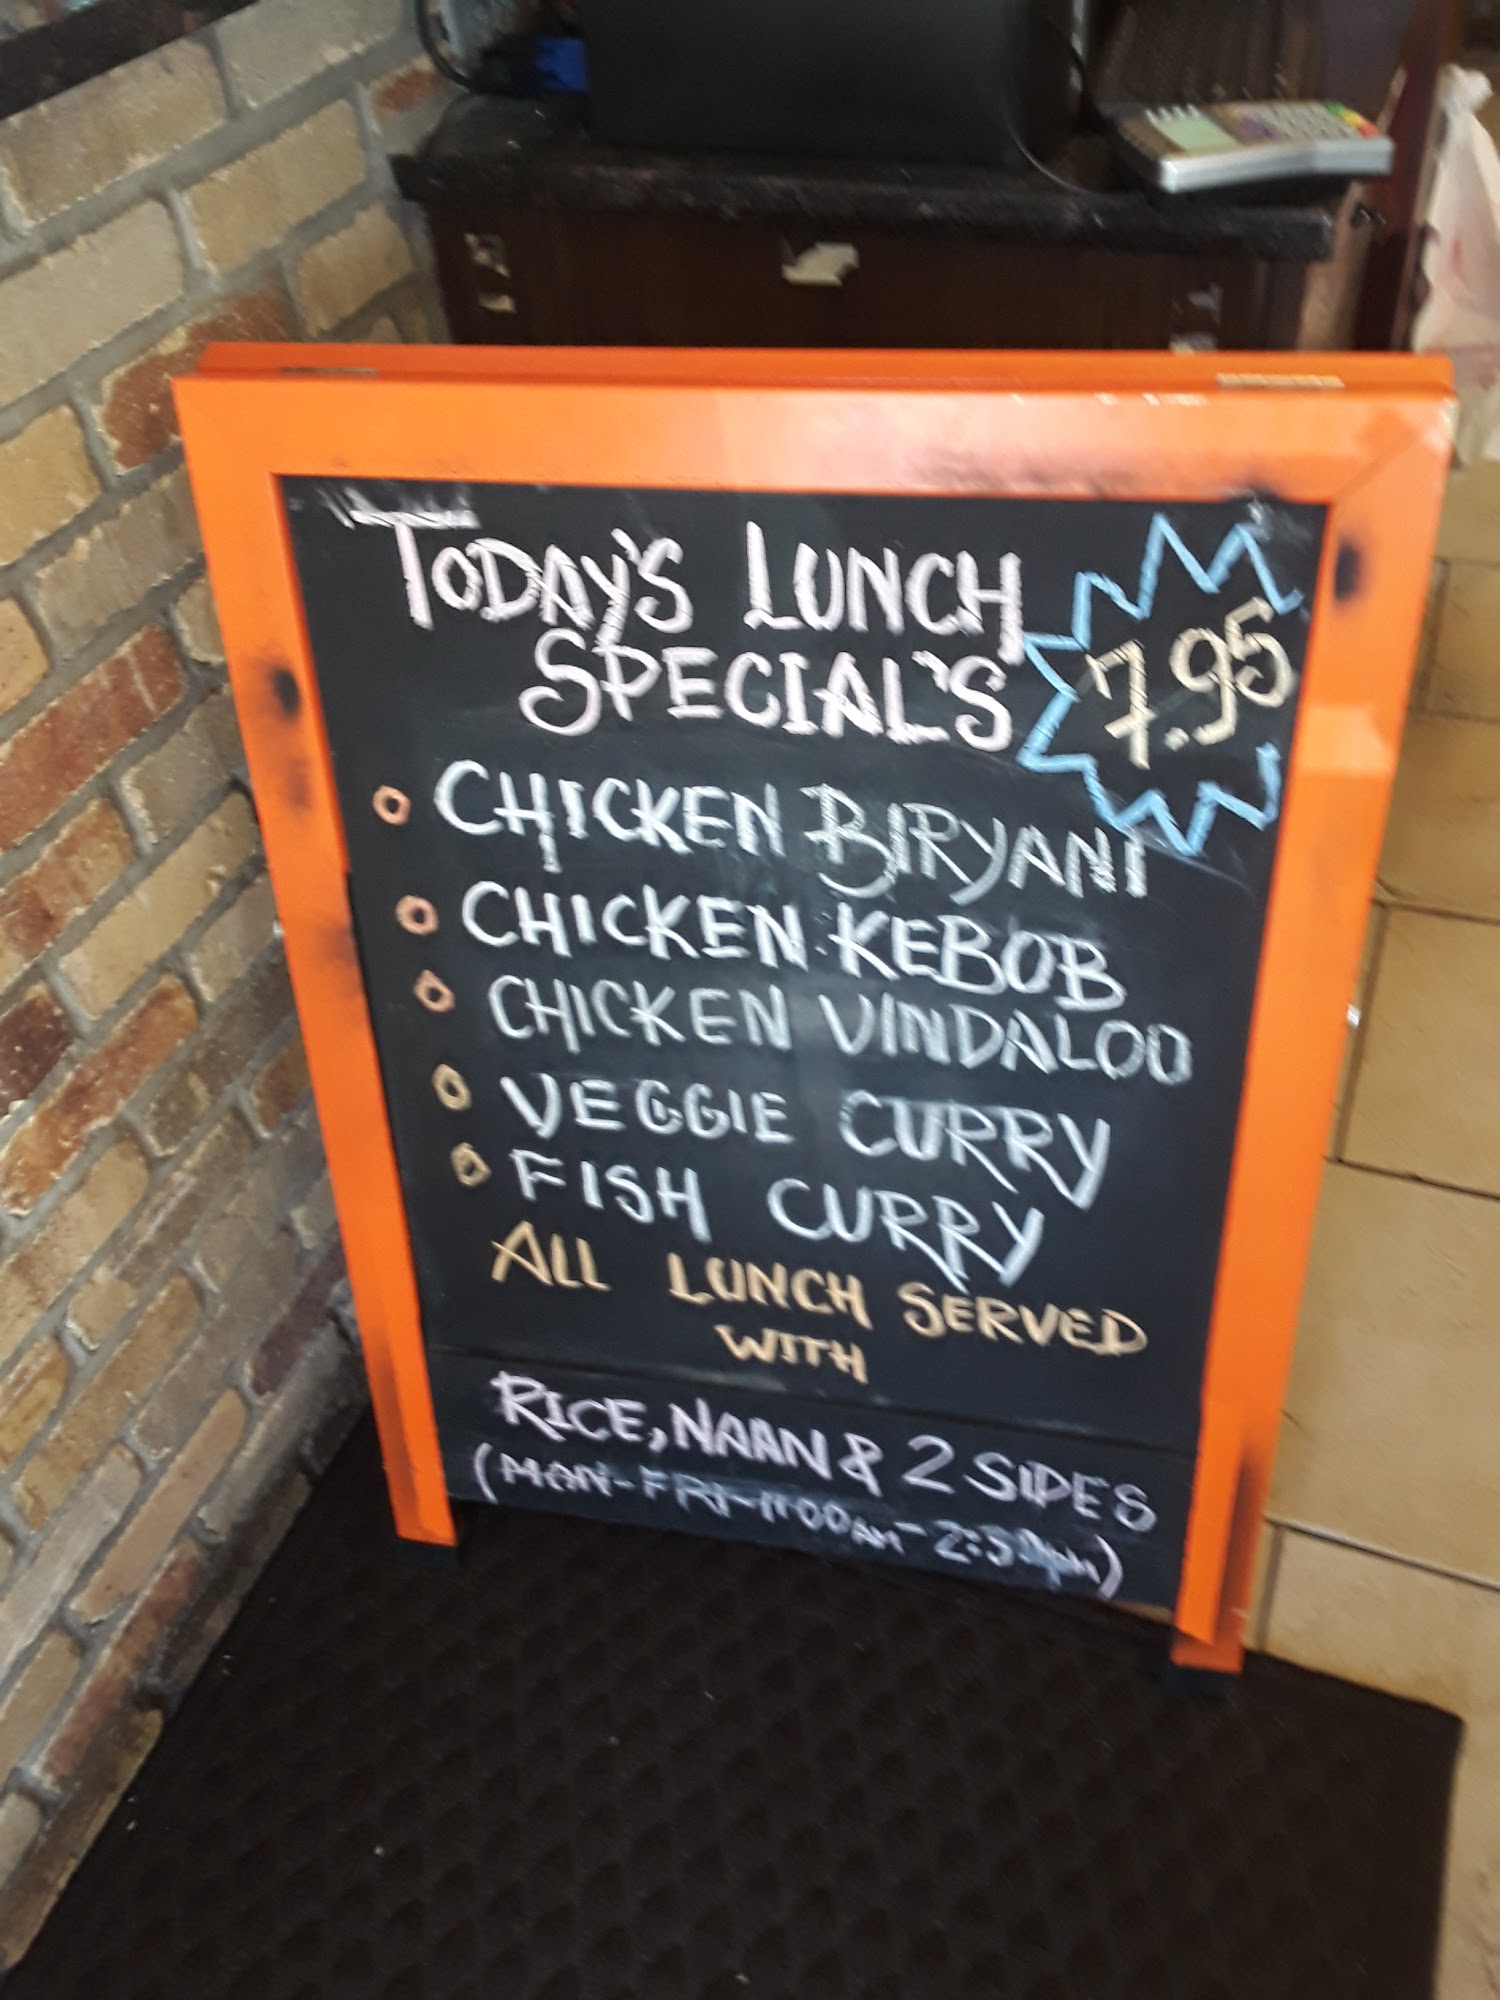 TODAY'S LUNCH
SPECIAL'S
7.95
CHICKEN BIRYANI
CHICKEN KEBOB
CHICKEN VINDALOO
VEGGIE CURRY
FISH CURRY
ALL LUNCH SERVED
WITH
RICE, NAAN & 2 SIDES
(MON-FRI-11:00am-2:30pm)